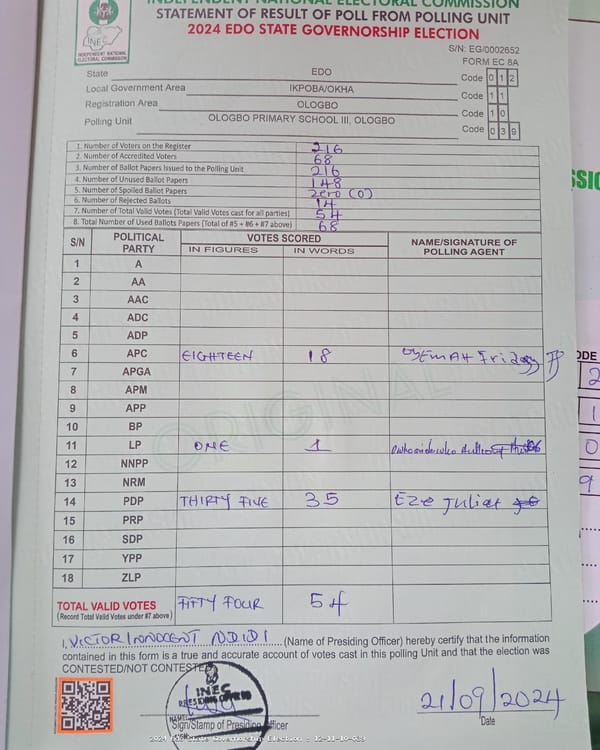 INDEPENDENT NATIONAL ELECTORAL COMMISSION
STATEMENT OF RESULT OF POLL FROM POLLING UNIT
2024 EDO STATE GOVERNORSHIP ELECTION
INEC
INDEPENDENT NATIONAL
ELECTORAL COMMISSION
S/N: EG/0002652
FORM EC 8A
State EDO Code 0 1 2
Local Government Area IKPOBA/OKHA Code 1 1
Registration Area OLOGBO Code 1 0
Polling Unit OLOGBO PRIMARY SCHOOL III, OLOGBO Code 0 3 9
1. Number of Voters on the Register 216
2. Number of Accredited Voters 68
3. Number of Ballot Papers Issued to the Polling Unit 216
4. Number of Unused Ballot Papers 148
5. Number of Spoiled Ballot Papers zero (0)
6. Number of Rejected Ballots 14
7. Number of Total Valid Votes (Total Valid Votes cast for all parties) 54
8. Total Number of Used Ballots Papers (Total of #5 + #6 + #7 above) 68
S/N POLITICAL PARTY VOTES SCORED NAME/SIGNATURE OF POLLING AGENT
IN FIGURES IN WORDS
1 A
2 AA
3 AAC
4 ADC
5 ADP
6 APC EIGHTEEN 18 Friday
7 APGA
8 APM
9 APP
10 BP
11 LP ONE 1
12 NNPP
13 NRM
14 PDP THIRTY FIVE 35 Eze Juliet
15 PRP
16 SDP
17 YPP
18 ZLP
ORIGINAL
TOTAL VALID VOTES FIFTY FOUR 54
(Record Total Valid Votes under #7 above)
I, VICTOR INNOCENT NDIDI (Name of Presiding Officer) hereby certify that the information
contained in this form is a true and accurate account of votes cast in this polling Unit and that the election was
CONTESTED/NOT CONTESTED
INEC
PRESIDING OFFICER
NAME:
Sign/Stamp of Presiding Officer
21/09/2024
Date